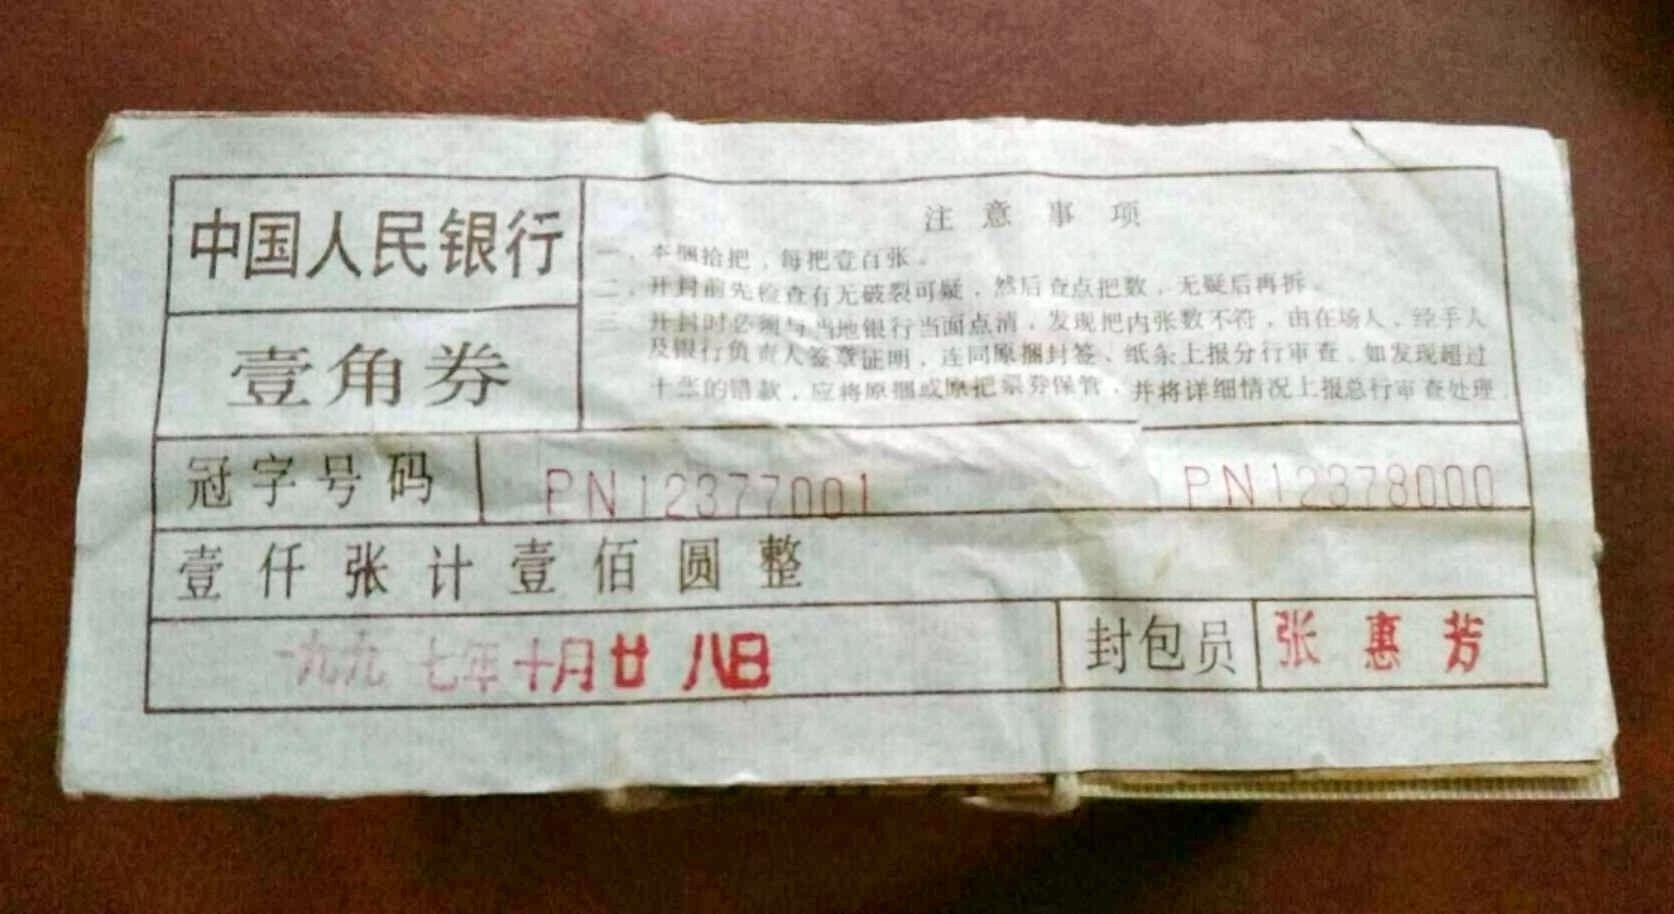 中国人民银行
壹角券
注意事项
一、本捆拾把，每把壹百张。
二、开封前先检查有无破裂可疑，然后查点把数，无疑后再拆。
三、开封时必须与当地银行当面点清，发现把内张数不符，由在场人、经手人
及银行负责人签章证明，连同原捆封签、纸条上报分行审查。如发现超过
十张的错款，应将原捆或原把票券保管，并将详细情况上报总行审查处理。
冠字号码 PN12377001 PN12378000
壹仟张计壹佰圆整
一九九七年十月廿八日 封包员 张惠芳